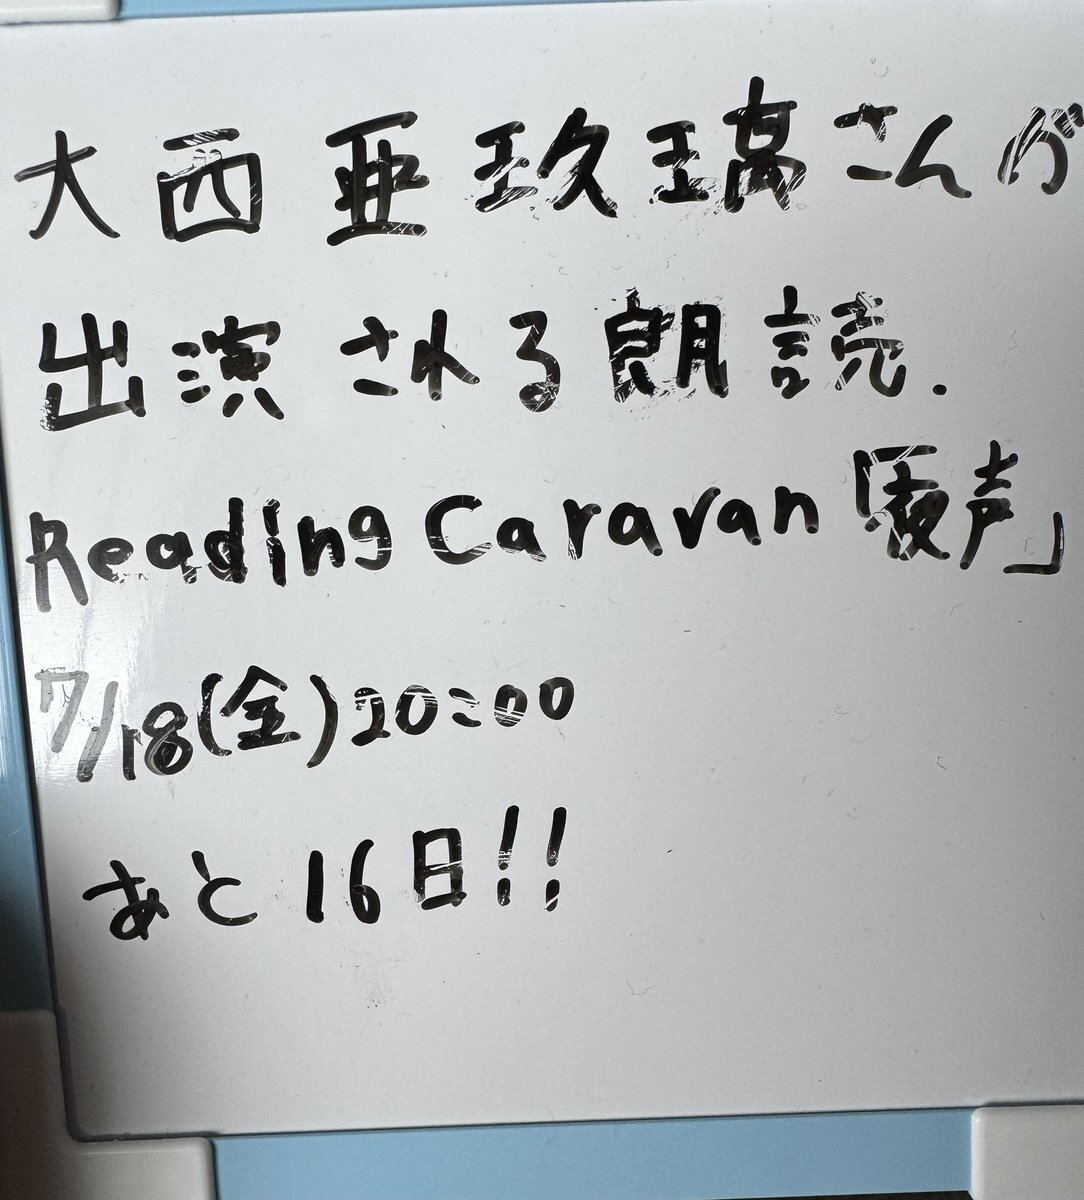 大西亜玖璃さんが
出演される朗読.
Reading Caravan「夜声」
7/18(金)20:00
あと16日!!